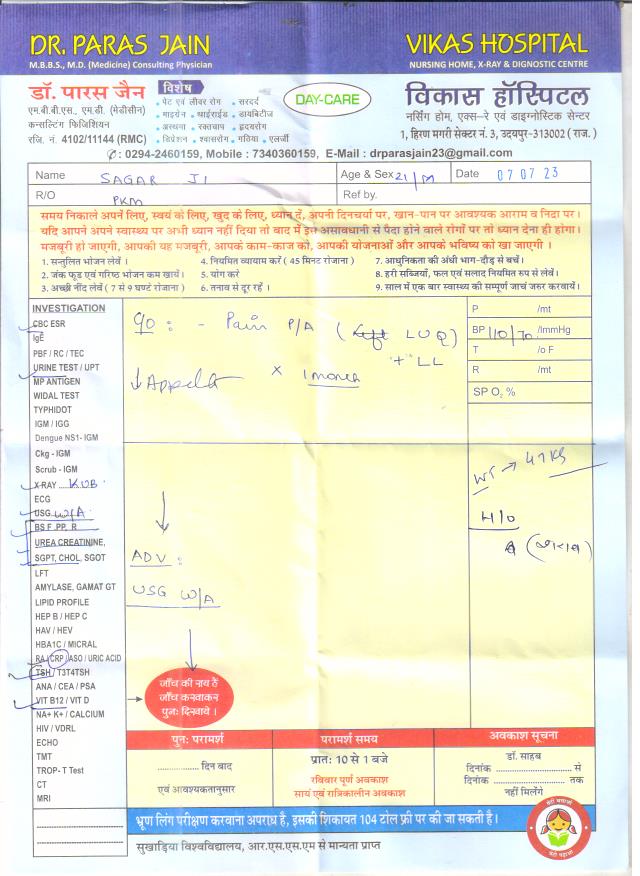 DR. PARAS JAIN
M.B.B.S., M.D. (Medicine) Consulting Physician
VIKAS HOSPITAL
NURSING HOME, X-RAY & DIGNOSTIC CENTRE
डॉ. पारस जैन
एम.बी.बी.एस., एम.डी. (मेडीसीन)
कन्सल्टिंग फिजिशियन
रजि. नं. 4102/11144 (RMC)
विशेष
• पेट एवं लीवर रोग • सरदर्द
• माइग्रेन • थाईराईड • डायबिटीज
• अस्थमा • रक्तचाप • हृदयरोग
• डिप्रेशन • श्वासरोग • गठिया • एलर्जी
DAY-CARE
विकास हॉस्पिटल
नर्सिंग होम, एक्स-रे एवं डाइग्नोस्टिक सेन्टर
1, हिरण मगरी सेक्टर नं. 3, उदयपुर-313002 ( राज. )
: 0294-2460159, Mobile : 7340360159, E-Mail : drparasjain23@gmail.com
Name SAGAR JI Age & Sex 21/M Date 07 07 23
R/O PKM Ref by.
समय निकाले अपनें लिए, स्वयं के लिए, खुद के लिए, ध्यान दें, अपनी दिनचर्या पर, खान-पान पर आवश्यक आराम व निद्रा पर।
यदि आपने अपने स्वास्थ्य पर अभी ध्यान नहीं दिया तो बाद में इसे असावधानी से पैदा होने वाले रोगों पर तो ध्यान देना ही होगा।
मजबूरी हो जाएगी, आपकी यह मजबूरी, आपके काम-काज को, आपकी योजनाओं और आपके भविष्य को खा जाएगी ।
1. सन्तुलित भोजन लेवें । 4. नियमित व्यायाम करें ( 45 मिनट रोजाना ) 7. आधुनिकता की अंधी भाग-दौड़ से बचें।
2. जंक फूड एवं गरिष्ठ भोजन कम खायें। 5. योग करे 8. हरी सब्जियां, फल एवं सलाद नियमित रुप से लेवें।
3. अच्छी नींद लेवें ( 7 से 9 घण्टे रोजाना ) 6. तनाव से दूर रहें । 9. साल में एक बार स्वास्थ्य की सम्पूर्ण जाचं जरुर करवायें।
INVESTIGATION
CBC ESR
IgE
PBF / RC / TEC
URINE TEST / UPT
MP ANTIGEN
WIDAL TEST
TYPHIDOT
IGM / IGG
Dengue NS1- IGM
Ckg - IGM
Scrub - IGM
X-RAY KUB
ECG
USG W/A
BS F, PP, R
UREA CREATININE,
SGPT, CHOL, SGOT
LFT
AMYLASE, GAMAT GT
LIPID PROFILE
HEP B / HEP C
HAV / HEV
HBA1C / MICRAL
RA / CRP / ASO / URIC ACID
TSH / T3T4TSH
ANA / CEA / PSA
VIT B12 / VIT D
NA+ K+ / CALCIUM
HIV / VDRL
ECHO
TMT
TROP- T Test
CT
MRI
- Pain P/A ( LUQ)
"+" LL
x 1 month
P /mt
BP 110/70 /mmHg
T /o F
R /mt
SP O₂ %
WT → 47 KG
H/o
ADV :
USG W/A
जाँच की राय हैं
जाँच करवाकर
पुनः दिखाये ।
पुनः परामर्श
.................. दिन बाद
एवं आवश्यकतानुसार
परामर्श समय
प्रातः 10 से 1 बजे
रविवार पूर्ण अवकाश
सायं एवं रात्रिकालीन अवकाश
अवकाश सूचना
डॉ. साहब
दिनांक .................. से
दिनांक .................. तक
नहीं मिलेंगे
भ्रूण लिंग परीक्षण करवाना अपराध है, इसकी शिकायत 104 टोल फ्री पर की जा सकती है।
सुखाड़िया विश्वविद्यालय, आर.एस.एस.एम से मान्यता प्राप्त
बेटी बचाओ
बेटी पढ़ाओ